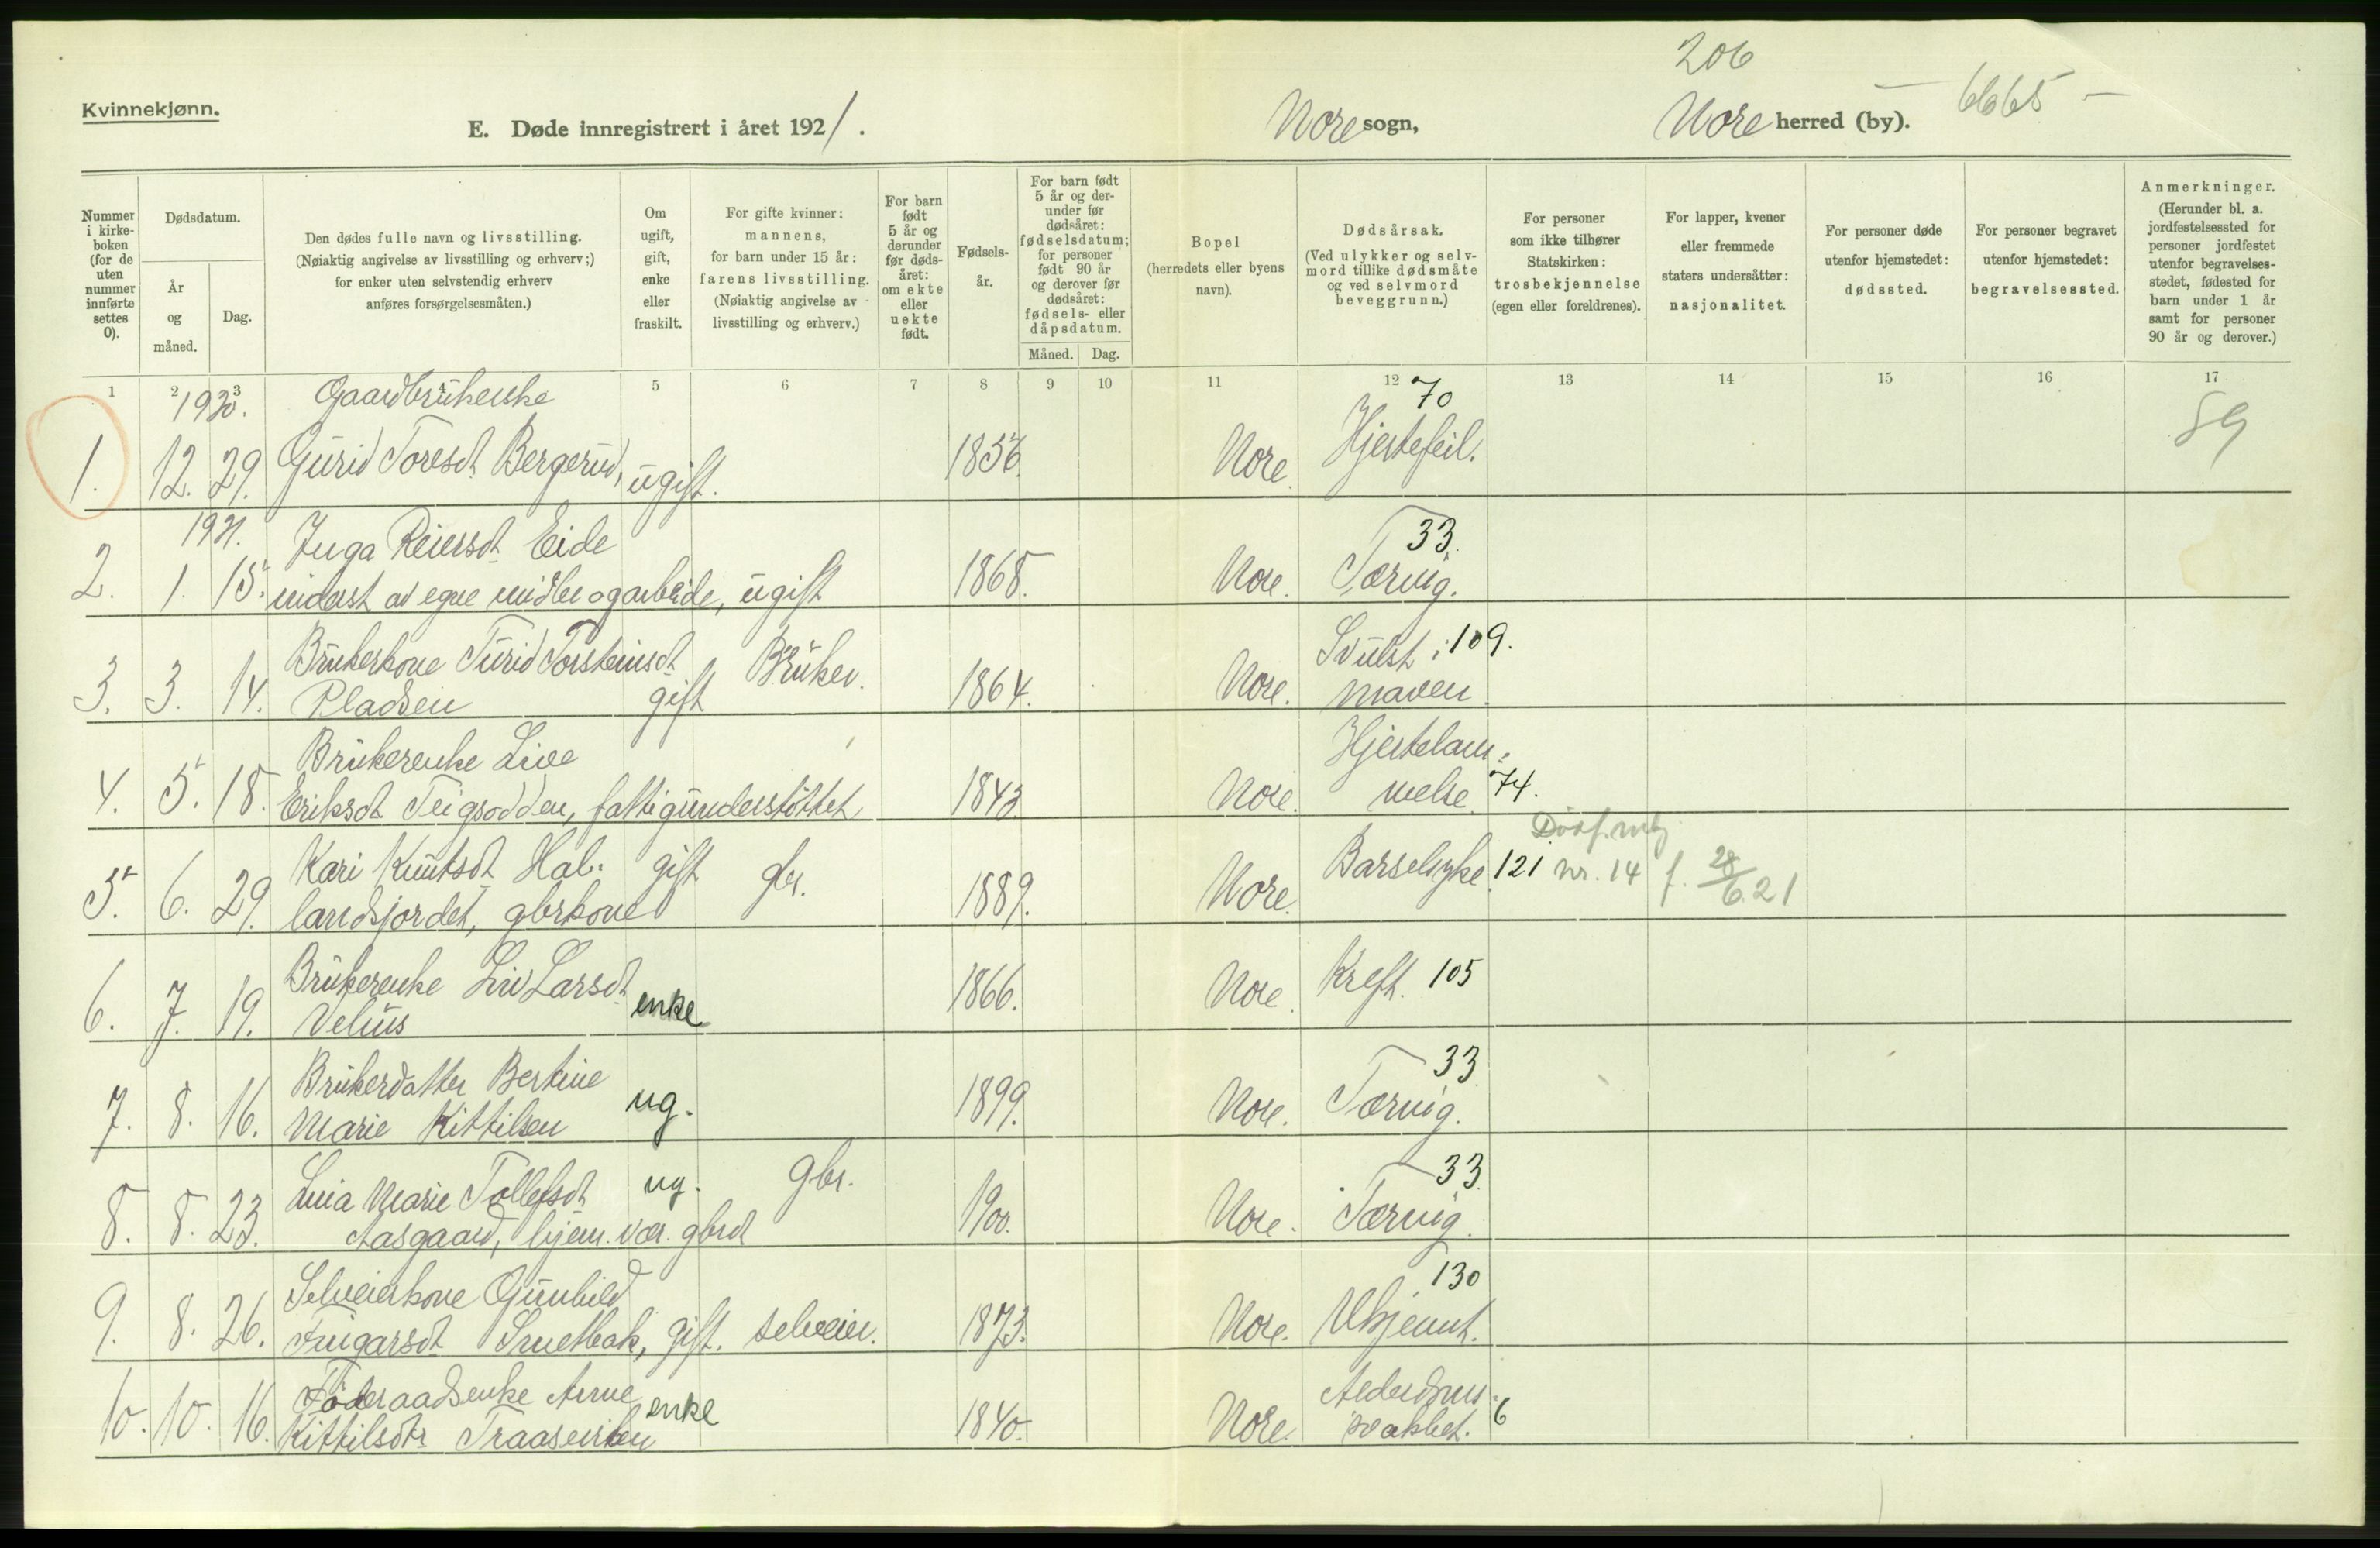 206
Kvinnekjønn.
E. Døde innregistrert i året 1921.
Nore sogn,
Nore herred (by).
6665 -
Nummer i kirke-boken (for de uten nummer innførte settes 0).
Dødsdatum.
År og måned.
Dag.
Den dødes fulle navn og livsstilling.
(Nøiaktig angivelse av livsstilling og erhverv;)
for enker uten selvstendig erhverv
anføres forsørgelsesmåten.)
Om ugift, gift, enke eller fraskilt.
For gifte kvinner: mannens, for barn under 15 år: farens livsstilling. (Nøiaktig angivelse av livsstilling og erhverv.)
For barn født 5 år og derunder før døds-året: om ekte eller uekte født.
Fødsels-år.
For barn født 5 år og der-under før dødsåret: fødselsdatum; for personer født 90 år og derover før dødsåret: fødsels- eller dåpsdatum.
Måned. Dag.
Bopel (herredets eller byens navn).
Dødsårsak. (Ved ulykker og selv-mord tillike dødsmåte og ved selvmord beveggrunn.)
For personer som ikke tilhører Statskirken: trosbekjennelse (egen eller foreldrenes).
For lapper, kvener eller fremmede staters undersåtter: nasjonalitet.
For personer døde utenfor hjemstedet: dødssted.
For personer begravet utenfor hjemstedet: begravelsessted.
Anmerkninger. (Herunder bl. a. jordfestelsessted for personer jordfestet utenfor begravelses-stedet, fødested for barn under 1 år samt for personer 90 år og derover.)
1 2 3 4 5 6 7 8 9 10 11 12 13 14 15 16 17
1920. Gaardbrukerske 70
1. 12. 29. Gurid Toresdt. Bergerud, ugift. 1856. Nore. Hjertefeil. 59
1921. Inga Reiersdt. Eide 33.
2. 1. 15. inderst av egne midler og arbeide, ugift 1868. Nore. Tæring.
Brukerkone Turid Torsteinsdt. Bruker. Svulst i 109.
3. 3. 14. Pladsen gift 1864. Nore. maven.
Brukerenke Live Hjertelam-
4. 5. 18. Eriksdt. Teigsodden, fattigunderstøttet 1843. Nore. melse. 74.
Kari Knutsdt. Hal- gift gbr. Barselsyke 121 nr. 14 f. 28/6 21
5. 6. 29. landsjordet, gbrkone 1889. Nore.
Brukerenke Liv Larsdt. Kreft. 105
6. 7. 19. Velus enke 1866. Nore.
Brukerdatter Bertine 33
7. 8. 16. Marie Kittilsen ug. 1899. Nore. Tæring.
Marie Tollefsdt. ug. gbr. 33.
8. 8. 23. Aasgaard, hjem. vær. gbrdt 1900. Nore. Tæring.
Selveierkone Gunhild 130
9. 8. 26. gift. selveier. 1873. Nore. Ukjennt.
Føderaadsenke Anne enke Alderdoms-
10. 10. 16. Kittilsdtr. 1840. Nore. svakhet. 6